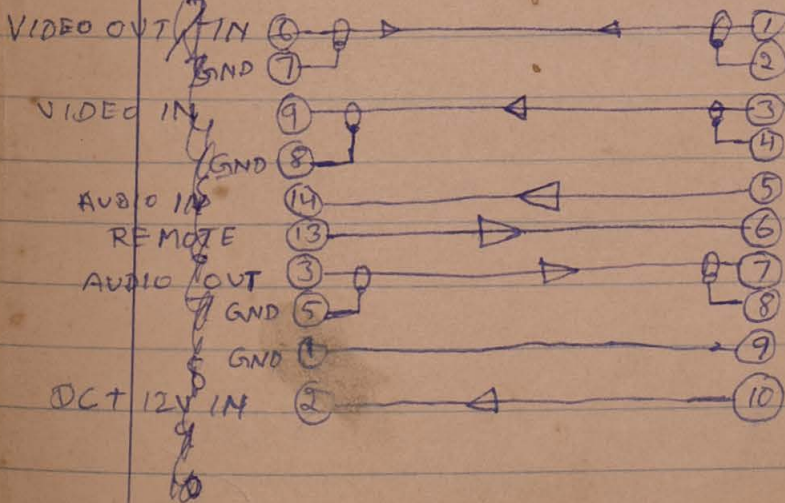 VIDEO OUT/IN 6 1
GND 7 2
VIDEO IN 9 3
GND 8 4
AUDIO IN 14 5
REMOTE 13 6
AUDIO OUT 3 7
GND 5 8
GND 1 9
DC+ 12V IN 2 10